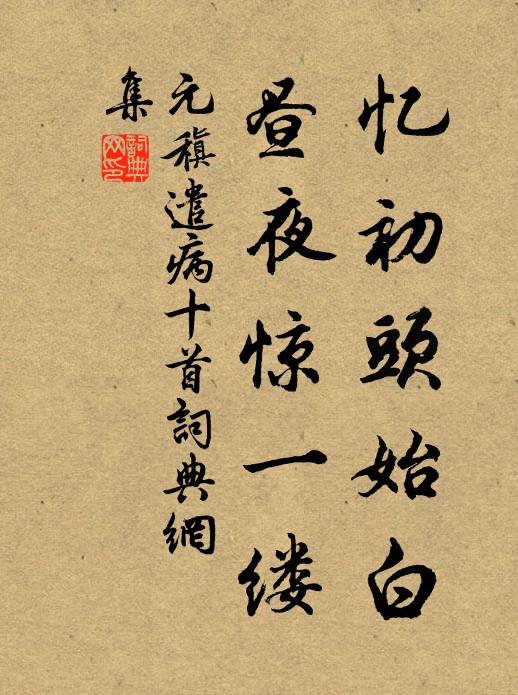 忆初頭始白
昼夜惊一缕
元稹遣病十首詞典網
集
詞典网印